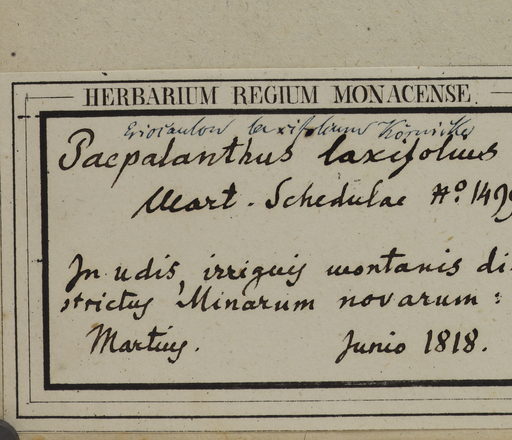 HERBARIUM REGIUM MONACENSE.
Eriocaulon laxifolium Körnicke
Paepalanthus laxifolius
Mart. Schedulae No. 149
In udis, irriguis montanis di-
strictus Minarum novarum:
Martius. Junio 1818.